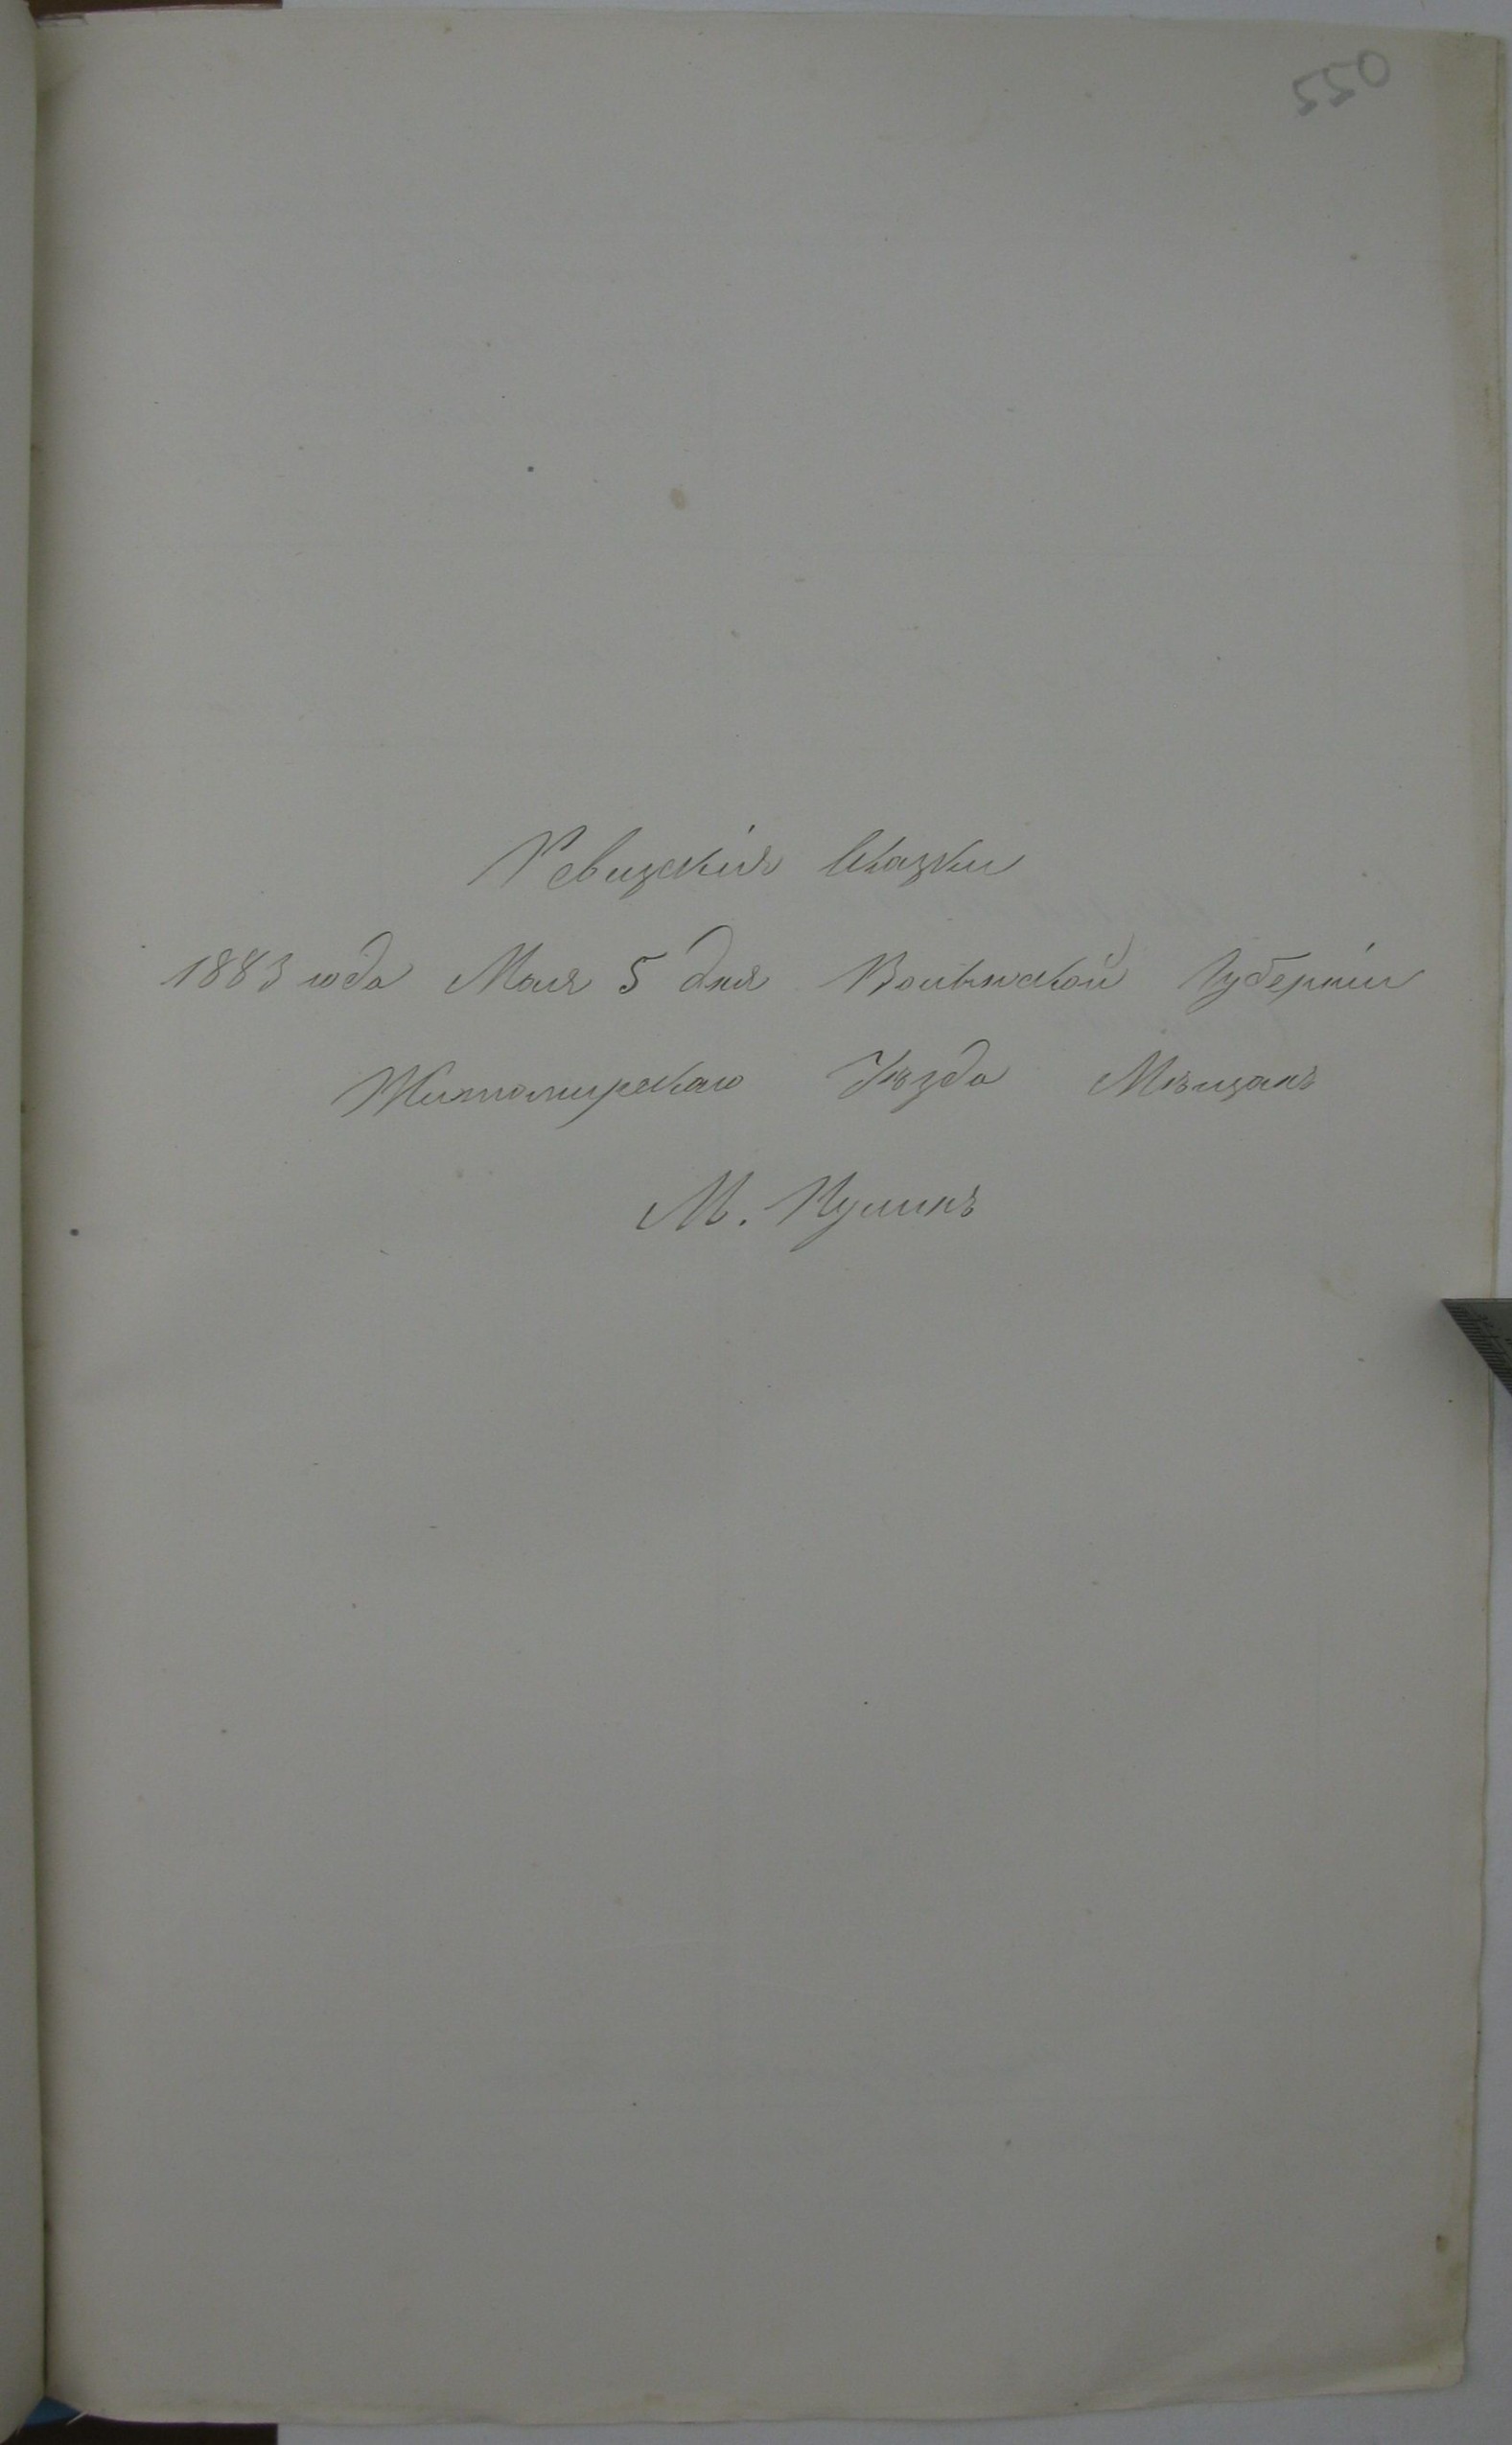 Ревизскія Сказки
1883 года Мая 5 дня Волынской Губерніи
Житомирскаго Уѣзда Мѣщанъ
М. Пулинъ